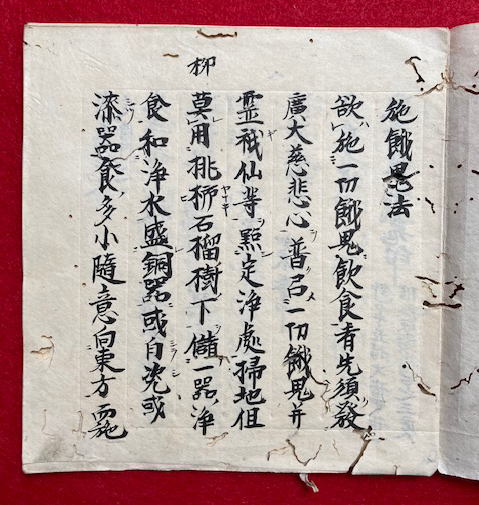 施餓鬼法
欲施一切餓鬼飲食者先須發
廣大慈悲心普召一切餓鬼并
霊祇仙等㸃定浄處掃地但
柳
莫用桃栁石榴樹下儲一器浄
食和浄水盛銅器或白瓷或
漆器食多小隨意向東方而施